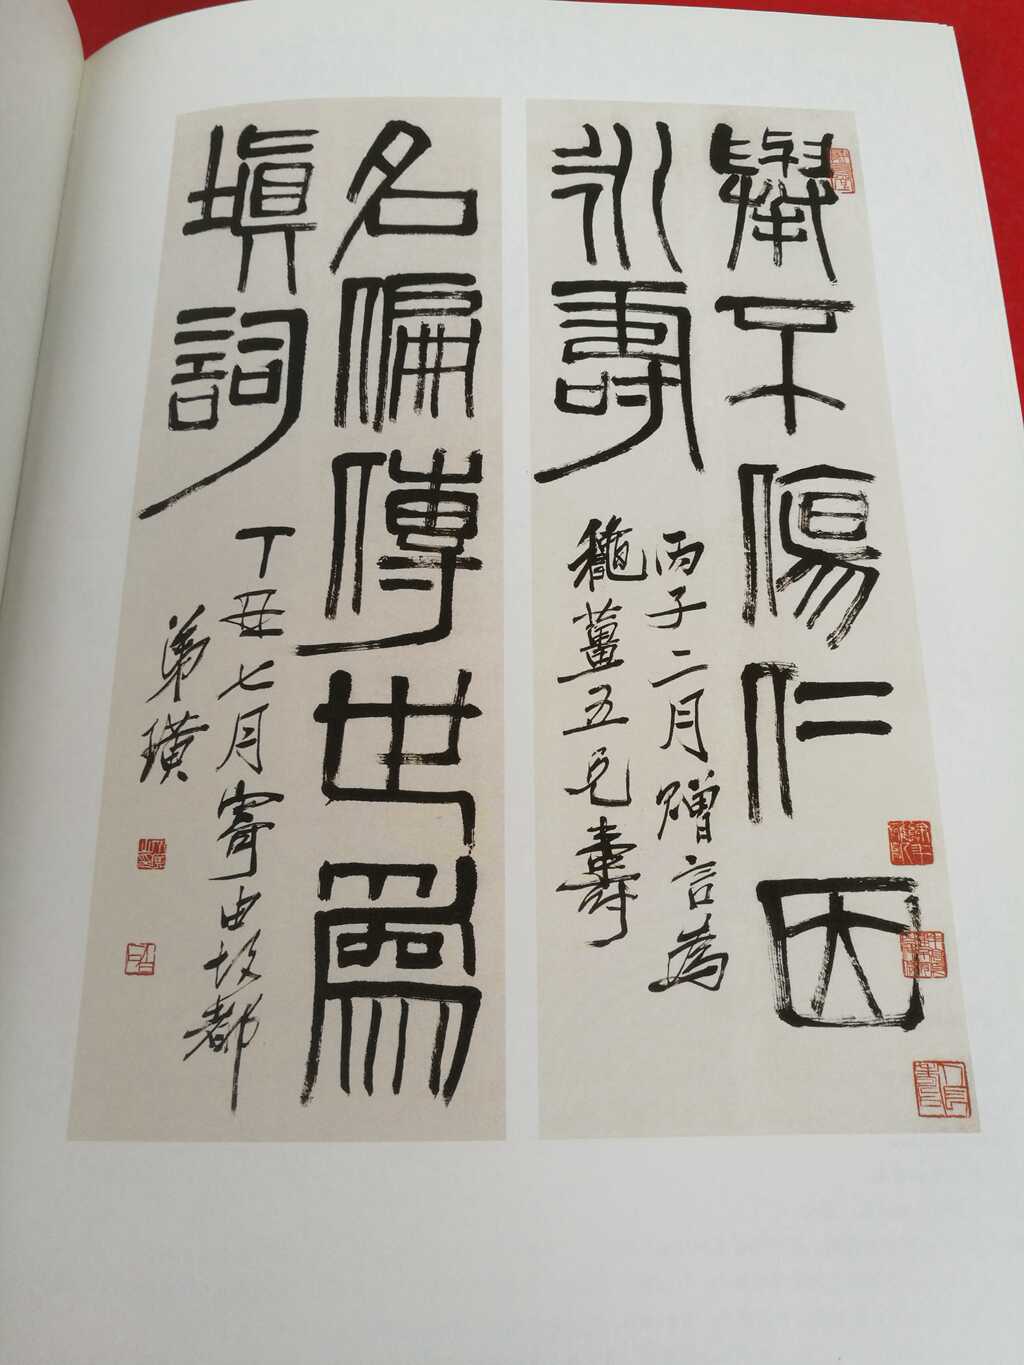 舉不傷仁因
永壽
丙子二月贈言為
龝薑五兄壽
名偏傳世爲
塡詞
丁丑七月寄由故都
弟璜